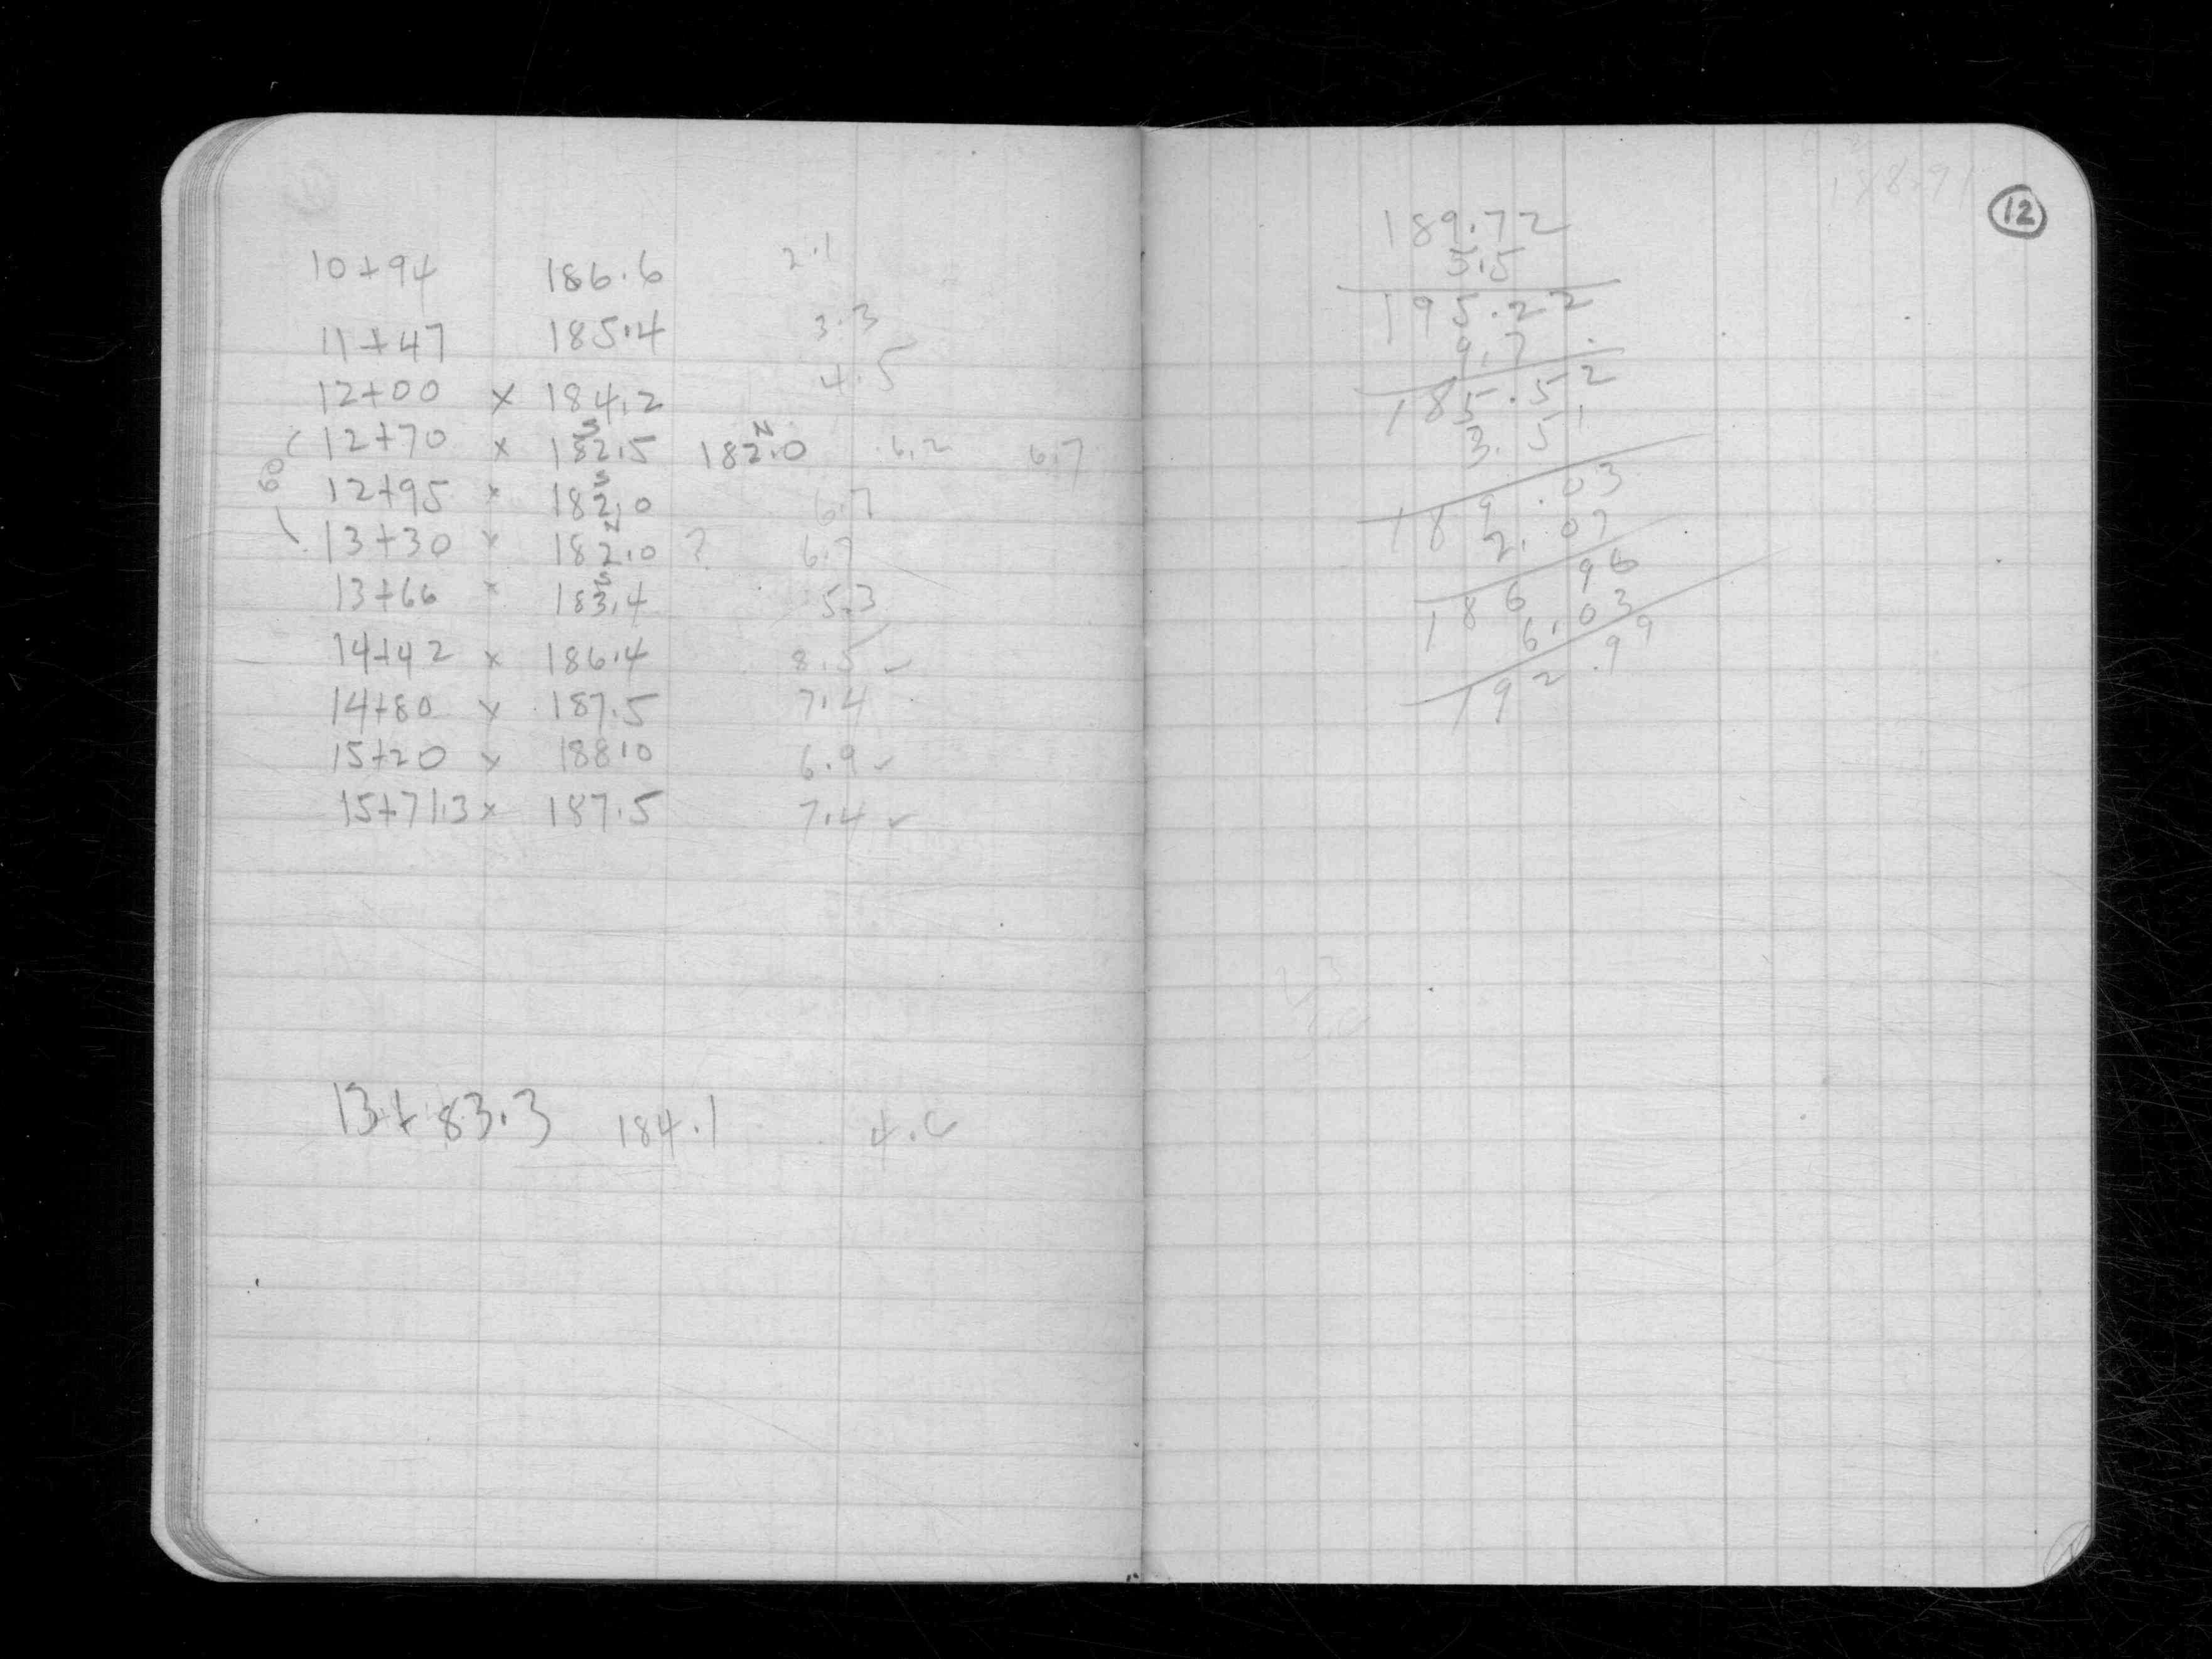 10+94 186.6 2.1
11+47 185.4 3.3
12+00 x 184.2 4.5
12+70 x 182.5 S 182.0 N 6.2 6.7
60
12+95 x 182.0 S 6.7
13+30 x 182.0 N ? 6.7
13+66 x 183.4 S 5.3
14+42 x 186.4 8.5 ✓
14+80 x 187.5 7.4
15+20 x 188.0 6.9 ✓
15+71.3 x 187.5 7.4 ✓
13+83.3 184.1 4.6
188.91
12
189.72
5.5
195.22
9.7
185.52
3.51
189.03
2.07
186 96
6.03
192.99